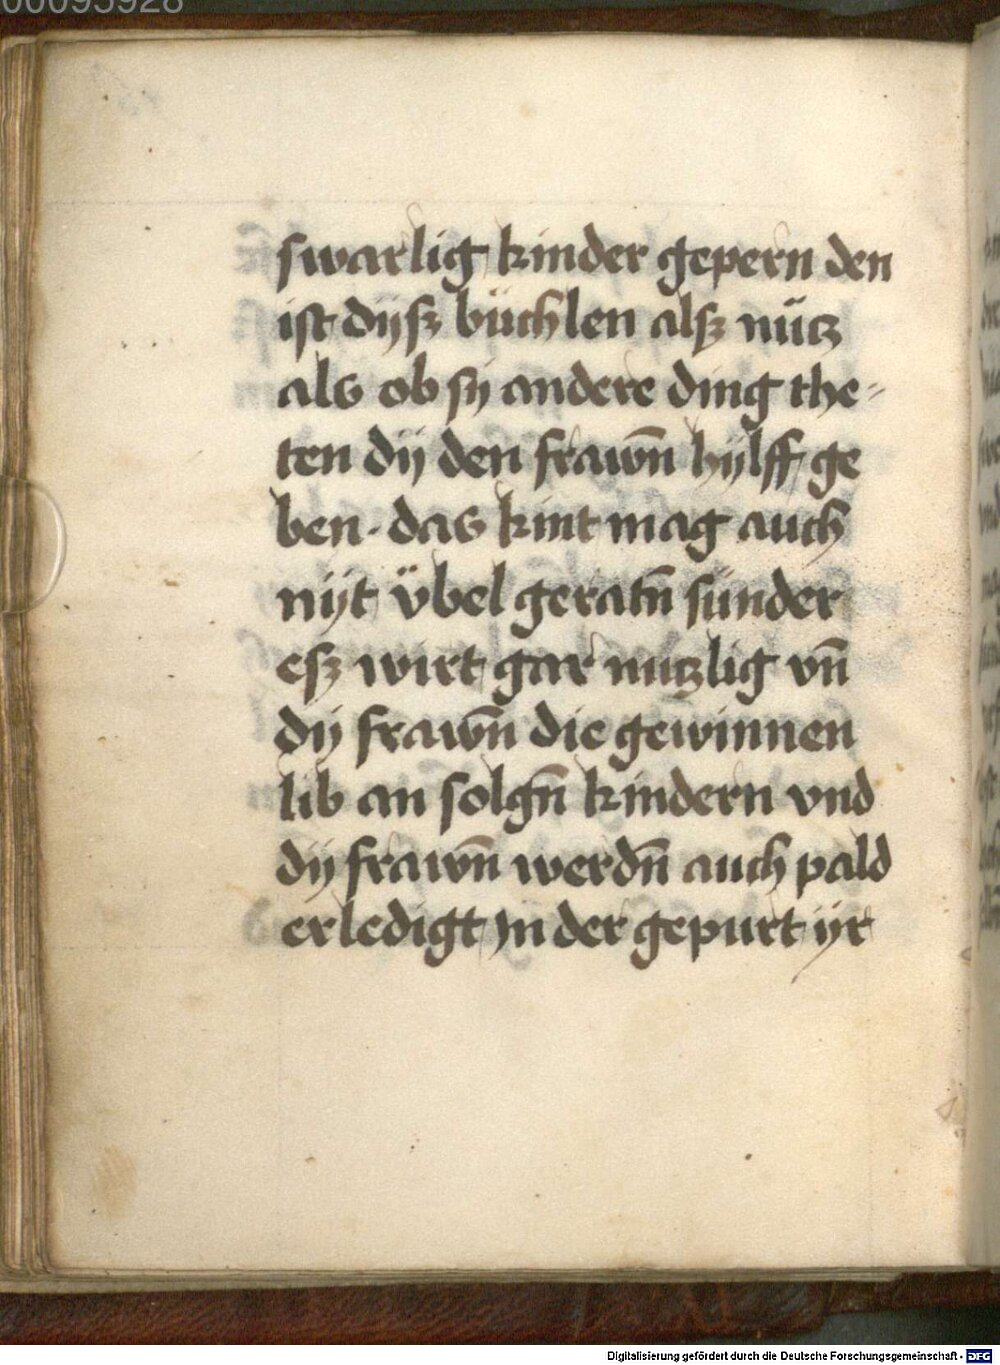 00095928
swarlig kinder gepern den
ist dÿsz büchlen alsz nütz
als ob sÿ andere ding the-
ten dÿ den frawn̄ hÿlff ge
ben. das kint mag auch
nÿt übel geratn̄ sünder
esz wirt gar nutzlig vn̄
dÿ frawn̄ die gewinnen
lib an solgn̄ kindern vnd
dÿ frawn̄ werdn̄ auch pald
erledigt in der gepurt ÿr
Digitalisierung gefördert durch die Deutsche Forschungsgemeinschaft - DFG